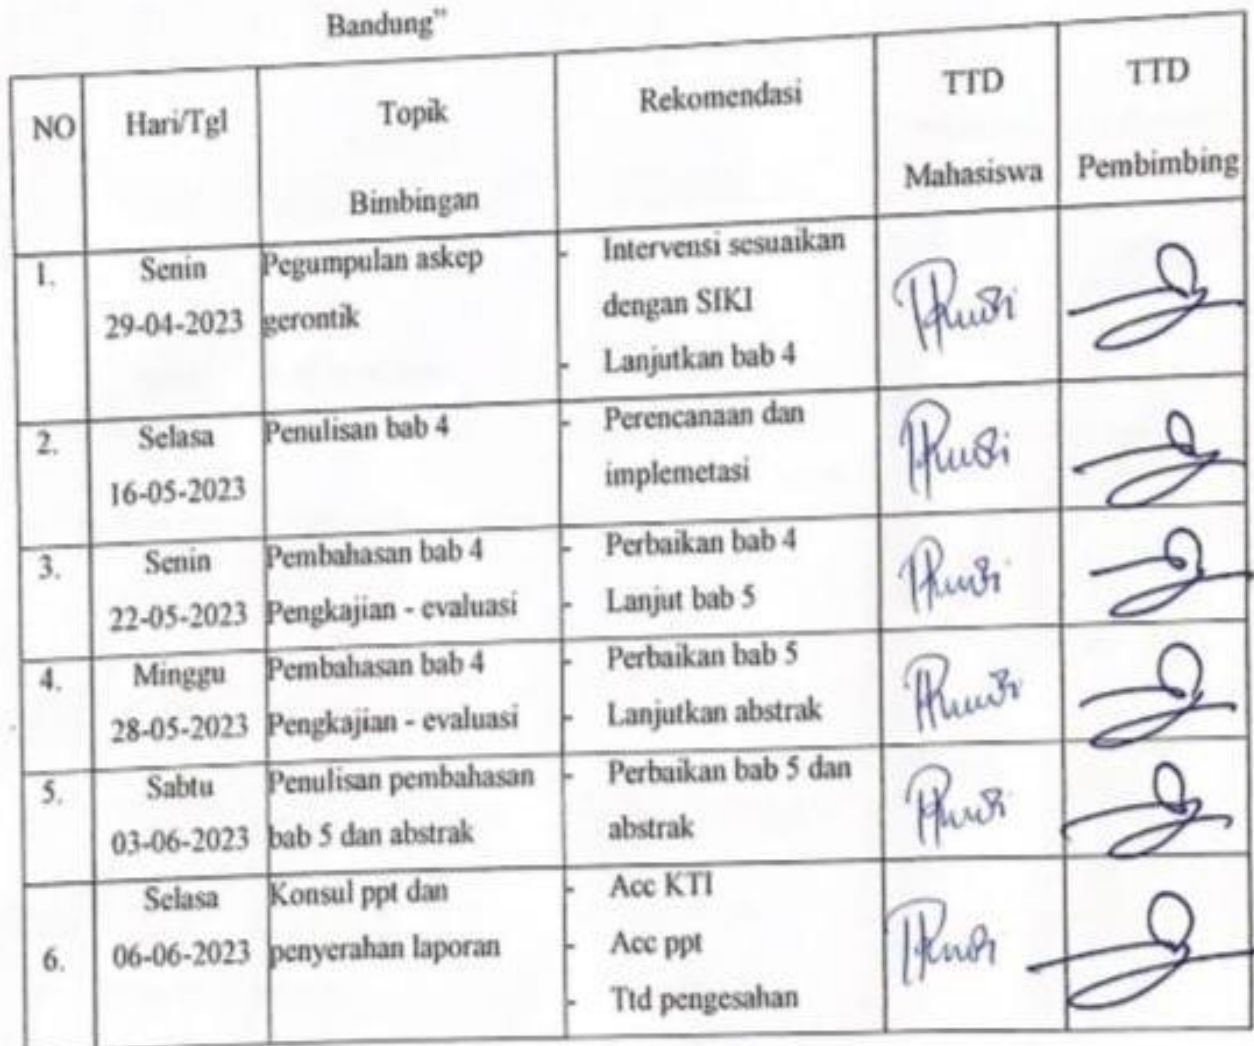 Bandung”
NO Hari/Tgl Topik Bimbingan Rekomendasi TTD Mahasiswa TTD Pembimbing
1. Senin 29-04-2023
Pegumpulan askep
gerontik
- Intervensi sesuaikan
dengan SIKI
- Lanjutkan bab 4
2. Selasa 16-05-2023
Penulisan bab 4
- Perencanaan dan
implemetasi
3. Senin 22-05-2023
Pembahasan bab 4
Pengkajian - evaluasi
- Perbaikan bab 4
- Lanjut bab 5
4. Minggu 28-05-2023
Pembahasan bab 4
Pengkajian - evaluasi
- Perbaikan bab 5
- Lanjutkan abstrak
5. Sabtu 03-06-2023
Penulisan pembahasan
bab 5 dan abstrak
- Perbaikan bab 5 dan
abstrak
6. Selasa 06-06-2023
Konsul ppt dan
penyerahan laporan
- Acc KTI
- Acc ppt
- Ttd pengesahan